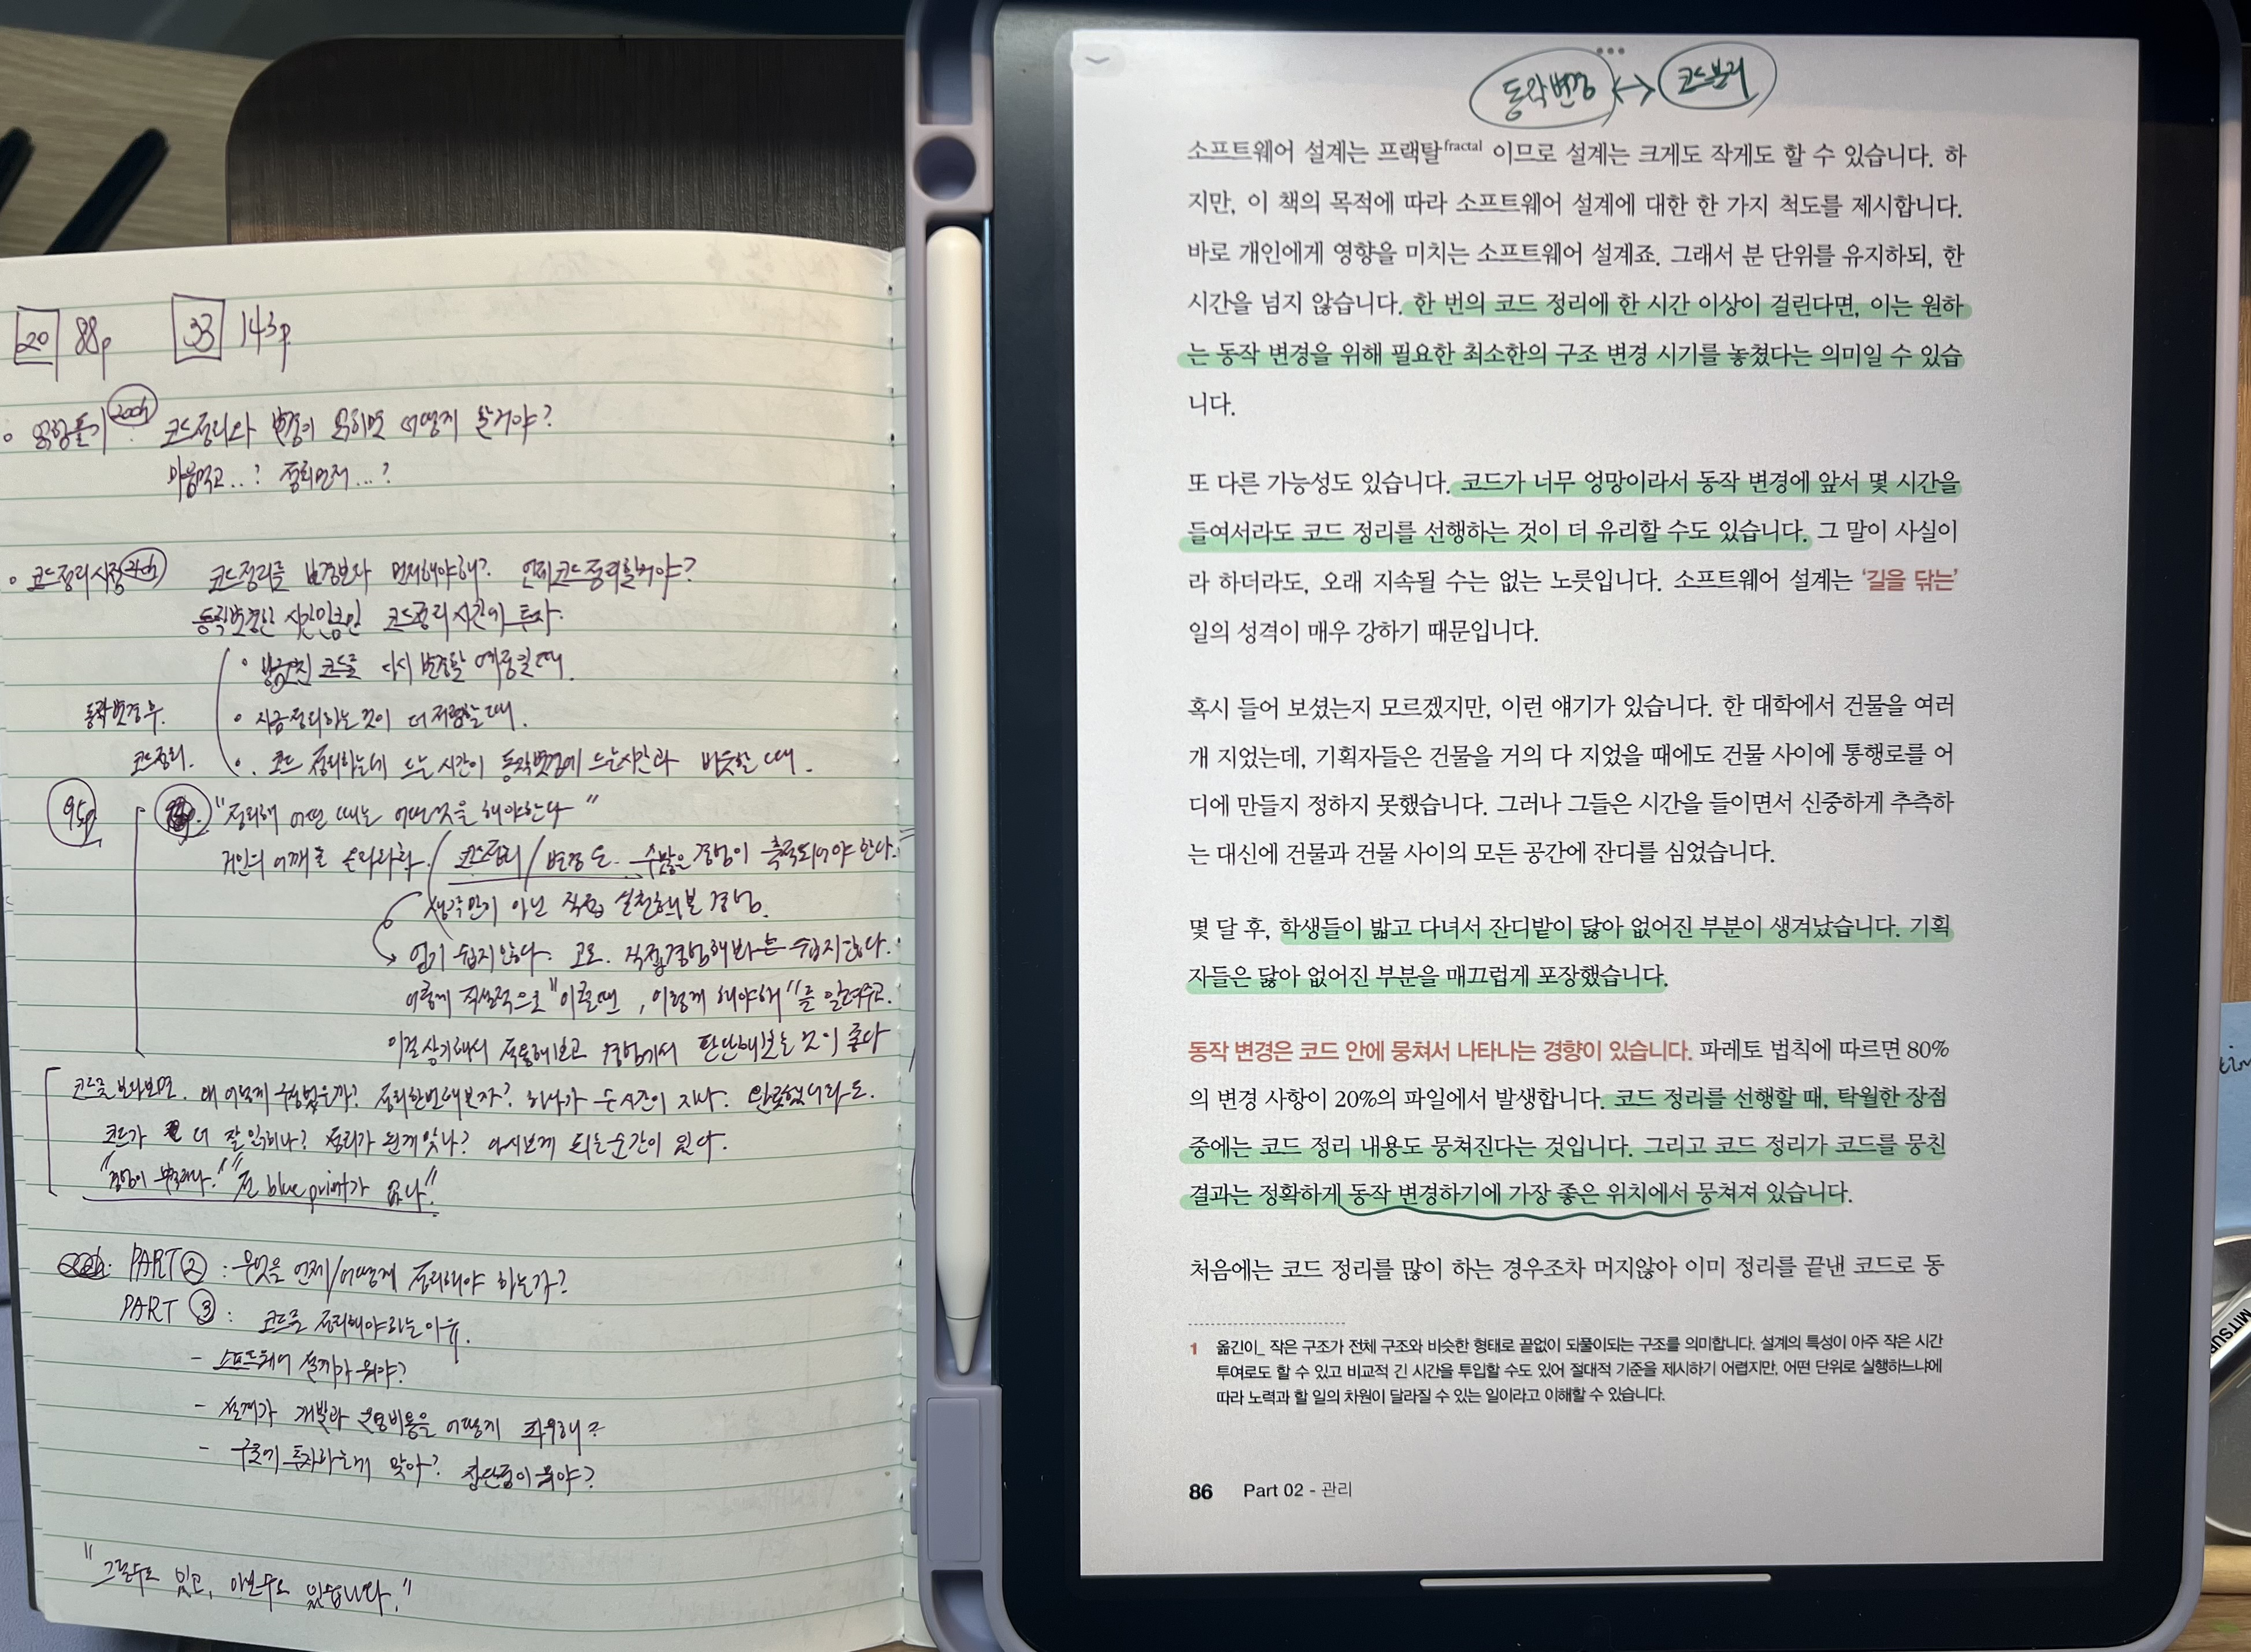 20 88p 33 143p
얽힘풀기 20ch 코드정리와 변경이 얽히면 어떻게 할거야?
마음먹고..? 정리먼저...?
코드정리시점 21ch 코드정리를 변경보다 먼저해야해? 언제코드정리할거야?
동작변경한 시간만큼만 코드정리 시간에 투자.
방금고친 코드를 다시 변경할 예정일때.
동작변경후 · 지금정리하는 것이 더 저렴할 때.
코드정리. · 코드 정리하는데 드는 시간이 동작변경에 드는시간과 비슷할 때.
95p "정리해 어떤 때는 어떤것을 해야한다"
거인의 어깨를 올라라 코드정리/변경은. 수많은 경험이 축적되어야 한다.
생각만이 아닌 직접 실천해본 경험.
얻기 쉽지않다. 고로. 직접경험해보는 쉽지않다.
이렇게 직설적으로 "이럴때, 이렇게 해야해"를 알려주고.
이걸상기해서 적용해보고 경험에서 판단해보는 것이 좋다
코드를 보다보면. 왜 이렇게 했을까? 정리한번해보자? 하다가 순시간이 지나. 안했더라도.
코드가 더 잘 읽히나? 정리가 된게 맞나? 다시보게 되는순간이 있다.
"경험이 부족하다." blue print가 없다"
PART ② : 무엇을 언제/어떻게 정리해야 하는가?
PART ③ : 코드를 정리해야하는 이유.
- 소프트웨어 설계가 뭐야?
- 설계가 개발과 운영비용을 어떻게 좌우해?
- 구조에 투자하는게 맞아? 장단점이 뭐야?
"그럴수도 있고, 아닐수도 있습니다."
동작변경 ↔ 코드정리
소프트웨어 설계는 프랙탈fractal 이므로 설계는 크게도 작게도 할 수 있습니다. 하
지만, 이 책의 목적에 따라 소프트웨어 설계에 대한 한 가지 척도를 제시합니다.
바로 개인에게 영향을 미치는 소프트웨어 설계죠. 그래서 분 단위를 유지하되, 한
시간을 넘지 않습니다. 한 번의 코드 정리에 한 시간 이상이 걸린다면, 이는 원하
는 동작 변경을 위해 필요한 최소한의 구조 변경 시기를 놓쳤다는 의미일 수 있습
니다.
또 다른 가능성도 있습니다. 코드가 너무 엉망이라서 동작 변경에 앞서 몇 시간을
들여서라도 코드 정리를 선행하는 것이 더 유리할 수도 있습니다. 그 말이 사실이
라 하더라도, 오래 지속될 수는 없는 노릇입니다. 소프트웨어 설계는 '길을 닦는'
일의 성격이 매우 강하기 때문입니다.
혹시 들어 보셨는지 모르겠지만, 이런 얘기가 있습니다. 한 대학에서 건물을 여러
개 지었는데, 기획자들은 건물을 거의 다 지었을 때에도 건물 사이에 통행로를 어
디에 만들지 정하지 못했습니다. 그러나 그들은 시간을 들이면서 신중하게 추측하
는 대신에 건물과 건물 사이의 모든 공간에 잔디를 심었습니다.
몇 달 후, 학생들이 밟고 다녀서 잔디밭이 닳아 없어진 부분이 생겨났습니다. 기획
자들은 닳아 없어진 부분을 매끄럽게 포장했습니다.
동작 변경은 코드 안에 뭉쳐서 나타나는 경향이 있습니다. 파레토 법칙에 따르면 80%
의 변경 사항이 20%의 파일에서 발생합니다. 코드 정리를 선행할 때, 탁월한 장점
중에는 코드 정리 내용도 뭉쳐진다는 것입니다. 그리고 코드 정리가 코드를 뭉친
결과는 정확하게 동작 변경하기에 가장 좋은 위치에서 뭉쳐져 있습니다.
처음에는 코드 정리를 많이 하는 경우조차 머지않아 이미 정리를 끝낸 코드로 동
1 옮긴이_ 작은 구조가 전체 구조와 비슷한 형태로 끝없이 되풀이되는 구조를 의미합니다. 설계의 특성이 아주 작은 시간
투여로도 할 수 있고 비교적 긴 시간을 투입할 수도 있어 절대적 기준을 제시하기 어렵지만, 어떤 단위로 실행하느냐에
따라 노력과 할 일의 차원이 달라질 수 있는 일이라고 이해할 수 있습니다.
86 Part 02 - 관리